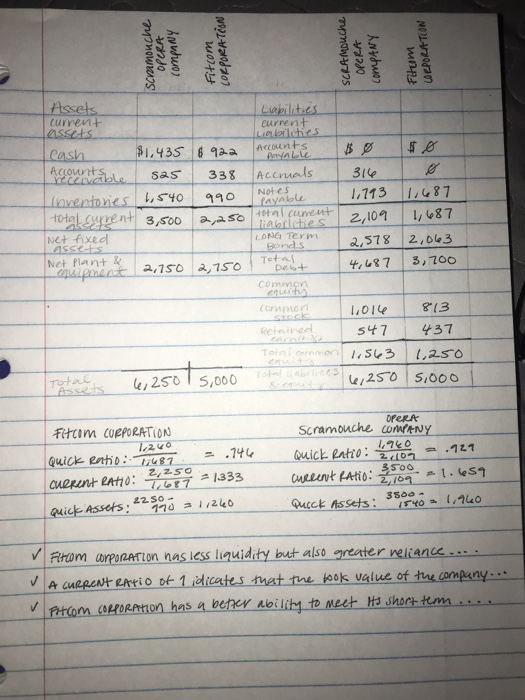 Scramouche OPERA COMPANY
Fitcom CORPORATION
SCRAMOUCHE OPERA COMPANY
Fitcom CORPORATION
Assets Liabilities
current assets current Liabilities
Cash $1,435 $ 922 Accounts Payable $ Ø $ Ø
Accounts receivable 525 338 Accruals 316 Ø
Inventories 1,540 990 Notes Payable 1,793 1,687
total current assets 3,500 2,250 total current liabilities 2,109 1,687
Net fixed assets LONG Term Bonds 2,578 2,063
Net Plant & equipment 2,750 2,750 Total Debt 4,687 3,700
Common equity
Common stock 1,016 813
Retained 547 437
Total common equity 1,563 1,250
Total Assets 6,250 5,000 Total liabilities & equity 6,250 5,000
Fitcom CORPORATION
Scramouche OPERA COMPANY
Quick Ratio: 1,260 / 1,687 = .746
Quick Ratio: 1,960 / 2,109 = .929
CURRENT RATIO: 2,250 / 1,687 = 1.333
CURRENT RATIO: 3500 / 2,109 = 1.659
Quick Assets: 2250 - 990 = 1,260
Quick Assets: 3500 - 1540 = 1,960
✓ Fitcom CORPORATION has less liquidity but also greater reliance ....
✓ A CURRENT RATIO of 1 idicates that the book value of the company...
✓ Fitcom CORPORATION has a better ability to meet its short term ....